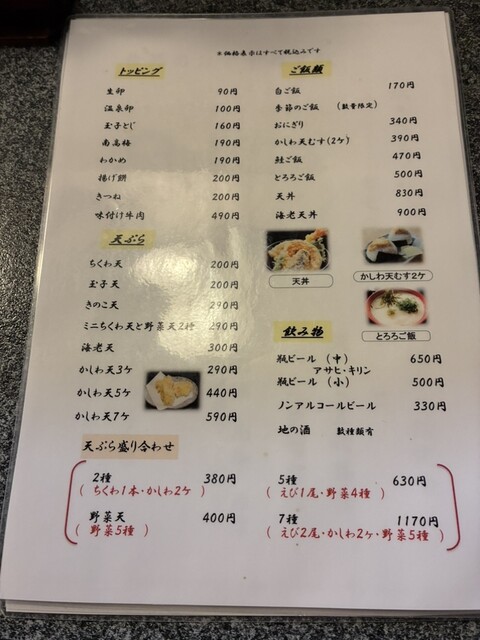 ※価格表示はすべて税込みです
トッピング
生卵 90円
温泉卵 100円
玉子とじ 160円
南高梅 190円
わかめ 190円
揚げ餅 200円
きつね 200円
味付け牛肉 490円
天ぷら
ちくわ天 200円
玉子天 200円
きのこ天 290円
ミニちくわ天と野菜天2種 290円
海老天 300円
かしわ天3ケ 290円
かしわ天5ケ 440円
かしわ天7ケ 590円
ご飯類
白ご飯 170円
季節のご飯 (数量限定)
おにぎり 340円
かしわ天むす(2ケ) 390円
鮭ご飯 470円
とろろご飯 500円
天丼 830円
海老天丼 900円
天丼
かしわ天むす2ケ
とろろご飯
飲み物
瓶ビール (中) 650円
アサヒ・キリン
瓶ビール (小) 500円
ノンアルコールビール 330円
地の酒 数種類有
天ぷら盛り合わせ
2種 380円
( ちくわ1本・かしわ2ケ )
野菜天 400円
( 野菜5種 )
5種 630円
( えび1尾・野菜4種 )
7種 1170円
( えび2尾・かしわ2ケ・野菜5種 )